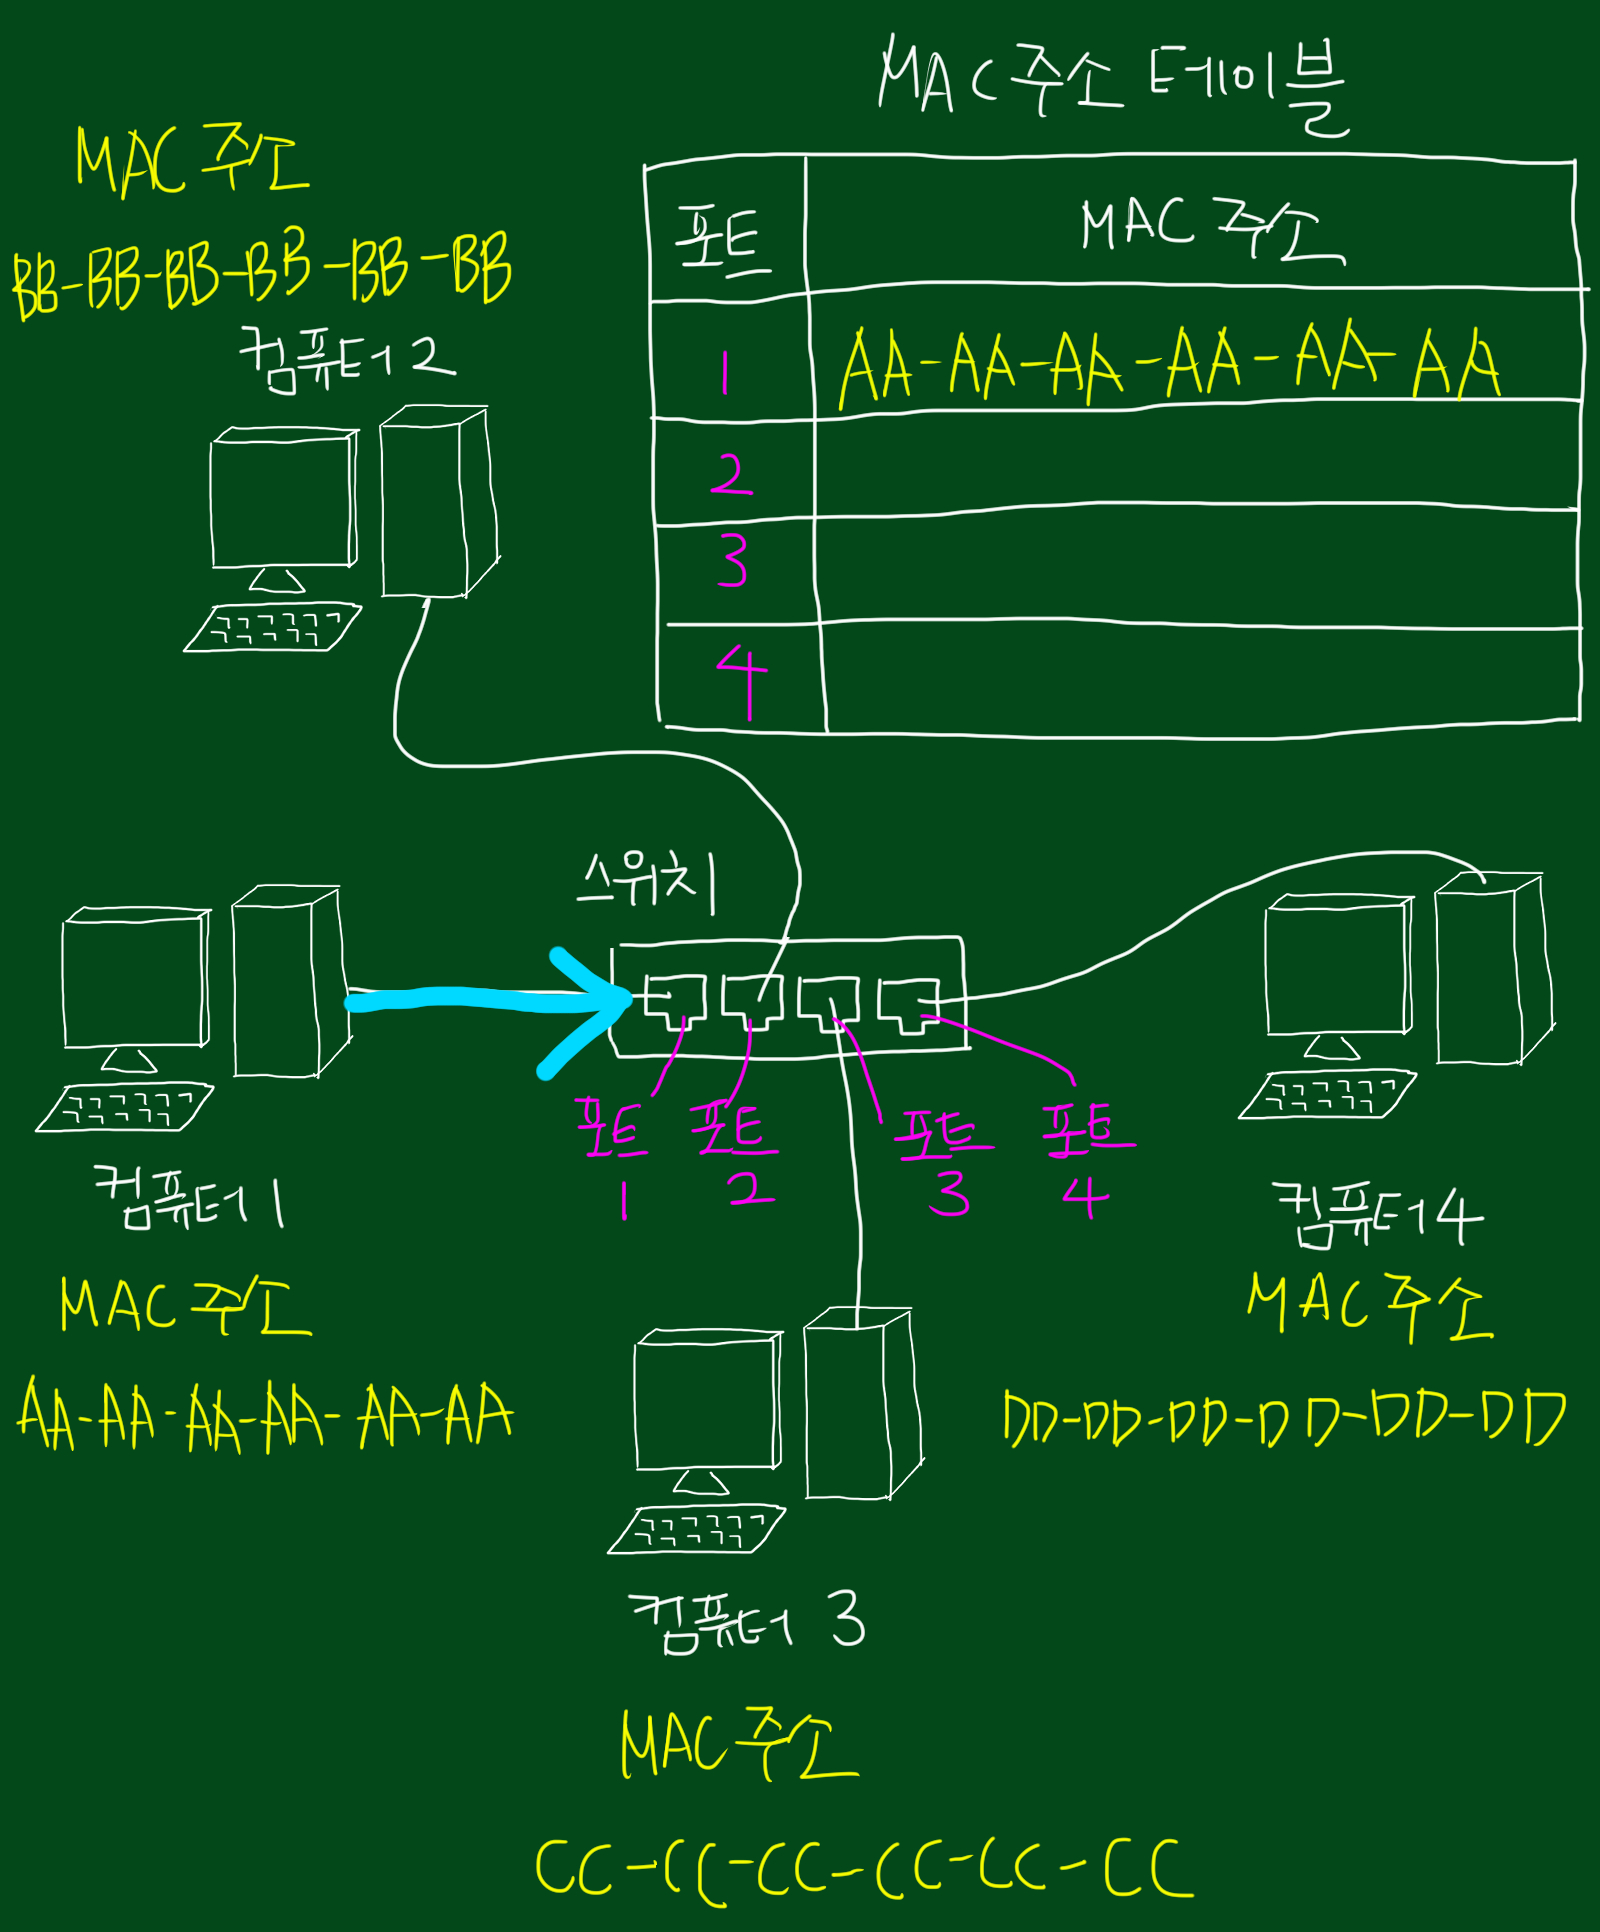 MAC 주소 테이블
포트 MAC 주소
1 AA-AA-AA-AA-AA-AA
2
3
4
MAC 주소
BB-BB-BB-BB-BB-BB
컴퓨터 2
스위치
포트 1
포트 2
포트 3
포트 4
컴퓨터 1
MAC 주소
AA-AA-AA-AA-AA-AA
컴퓨터 4
MAC 주소
DD-DD-DD-DD-DD-DD
컴퓨터 3
MAC 주소
CC-CC-CC-CC-CC-CC